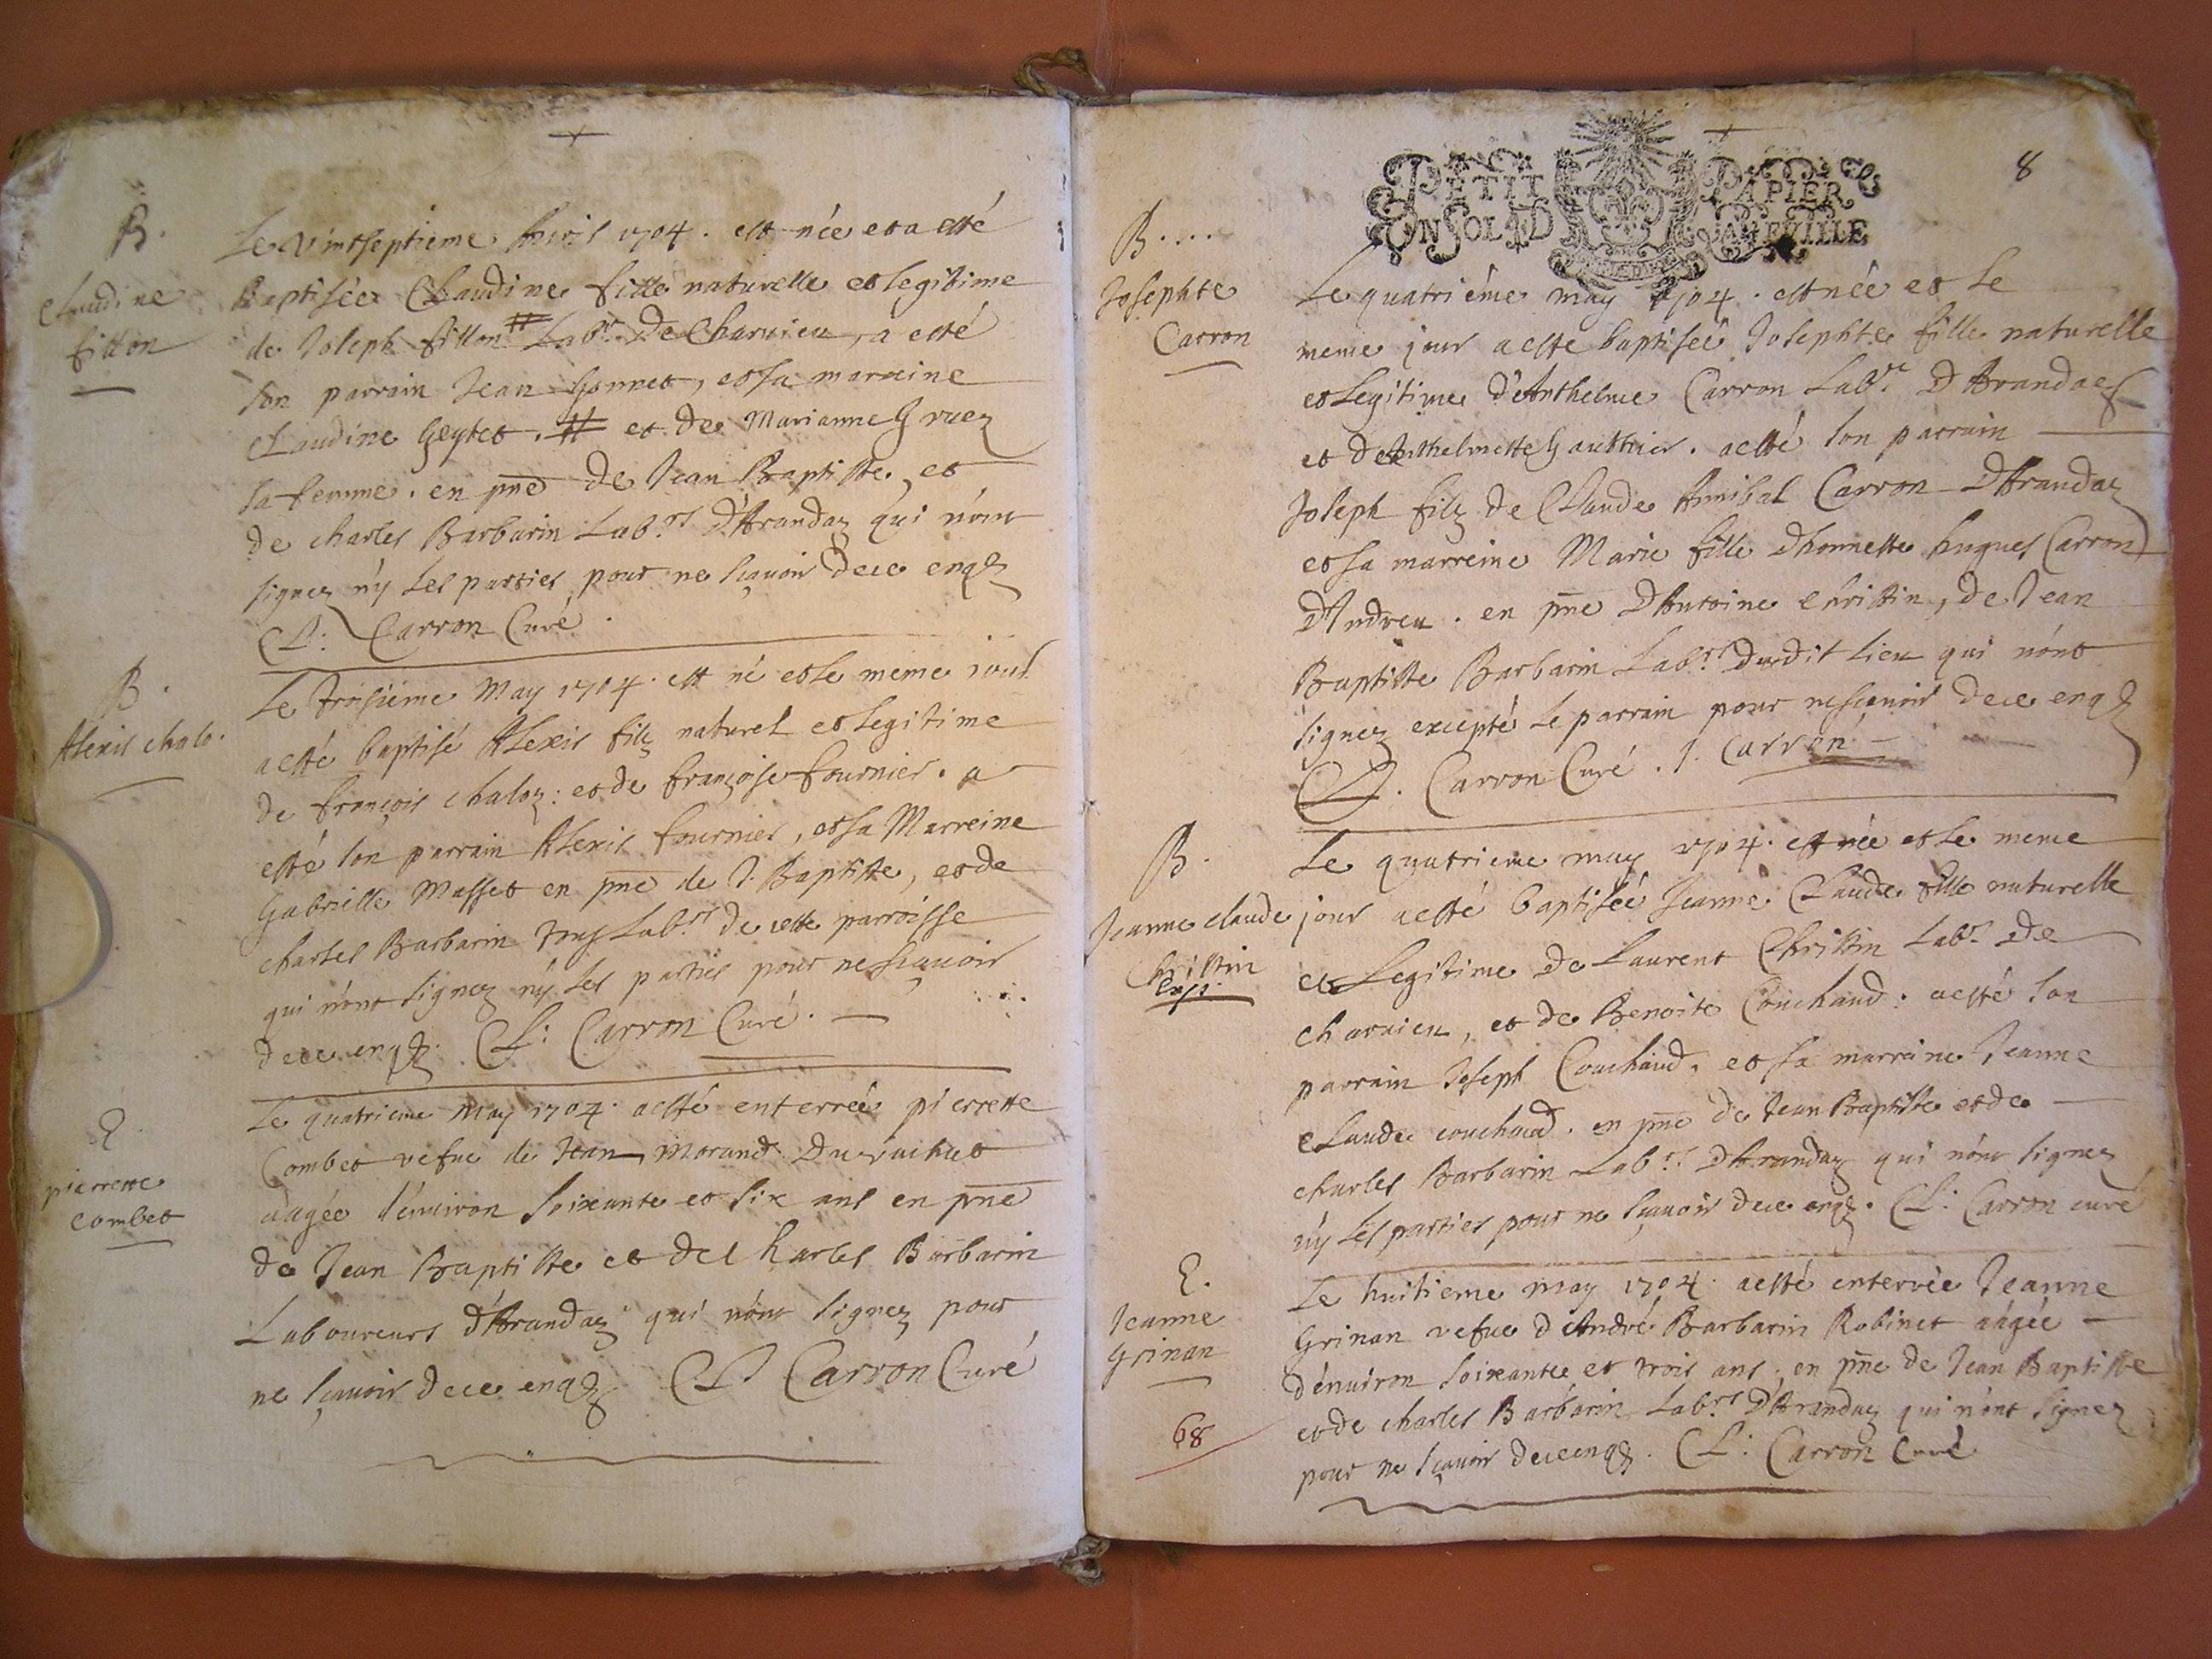 B.
Claudine
fillon
Le vintseptieme Avril 1704. est née et a esté
Baptisée Claudine fille naturelle et legitime
de Joseph fillon # Lab.r De Charvieu, a esté
son parrain Jean Gonnet, et sa marreine
Claudine Geytet. # et de Marianne Gruez
sa femme. en pñce De Jean Baptiste, et
de charles Barbarin Lab.rs D'Arandaz qui n'ont
signez n'y Les parties pour ne sçavoir De ce enqs
Cl: Carron Curé.
B.
Alexis chalo.
Le troisiéme May 1704. est né et le meme jour
a esté baptisé Alexis filz naturel et legitime
de françois chaloz: et de françoise fournier. a
esté son parrain Alexis fournier, et sa Marreine
Gabrielle Masset en pñce de J. Baptiste, et de
charles Barbarin tous Lab.rs de cette parroisse
qui n'ont signez n'y Les parties pour ne sçavoir
De ce enqs. Cl: Carron Curé.
E.
pierrette
combet
Le quatrieme May 1704. a esté enterrée pierrette
Combet vefue de Jean Morand Du
aagée d'enuiron soixante et six ans en pñce
de Jean Baptiste et de charles Barbarin
Laboureurs d'Arandaz qui n'ont signez pour
ne sçavoir De ce enqs Cl Carron Curé
8
PETIT PAPIER
UN SOL 4 D LA FEVILLE
B....
Josephte
Carron
Le quatriéme may 1704. est née et le
meme jour a esté baptisée Josephte fille naturelle
et Legitime d'Anthelme Carron Lab.r D'Arandaz
et de Anthelmette Gauthier. a esté son parrain
Joseph filz de Claude Annibal Carron D'Arandaz
et sa marreine Marie fille D'honneste hugues Carron
d'Andreu. en pñce D'Antoine Christin, de Jean
Baptiste Barbarin Lab.rs Dudit lieu qui n'ont
signez excepté le parrain pour ne sçavoir De ce enqs
Cl. Carron Curé. J. Carron
B.
Jeanne claude
Christin
Le quatrieme may 1704. est née et le meme
jour a esté baptisée Jeanne Claude fille naturelle
et Legitime De Laurent Christin Lab.r De
charvieu, et de Benoite Couchaud. a esté son
parrain Joseph Couchaud. et sa marreine Jeanne
Claude couchaud. en pñce de Jean Baptiste et de
charles Barbarin Lab.rs D'Arandaz qui n'ont signez
n'y Les parties pour ne sçavoir De ce enqs. Cl: Carron curé
E.
Jeanne
Grinan
68
Le huitieme may 1704. a esté enterrée Jeanne
Grinan vefue d'André Barbarin Robinet aagée
d'enuiron soixante et trois ans. en pñce de Jean Baptiste
et de charles Barbarin Lab.rs D'Arandaz qui n'ont signez
pour ne sçavoir De ce enqs. Cl: Carron Curé